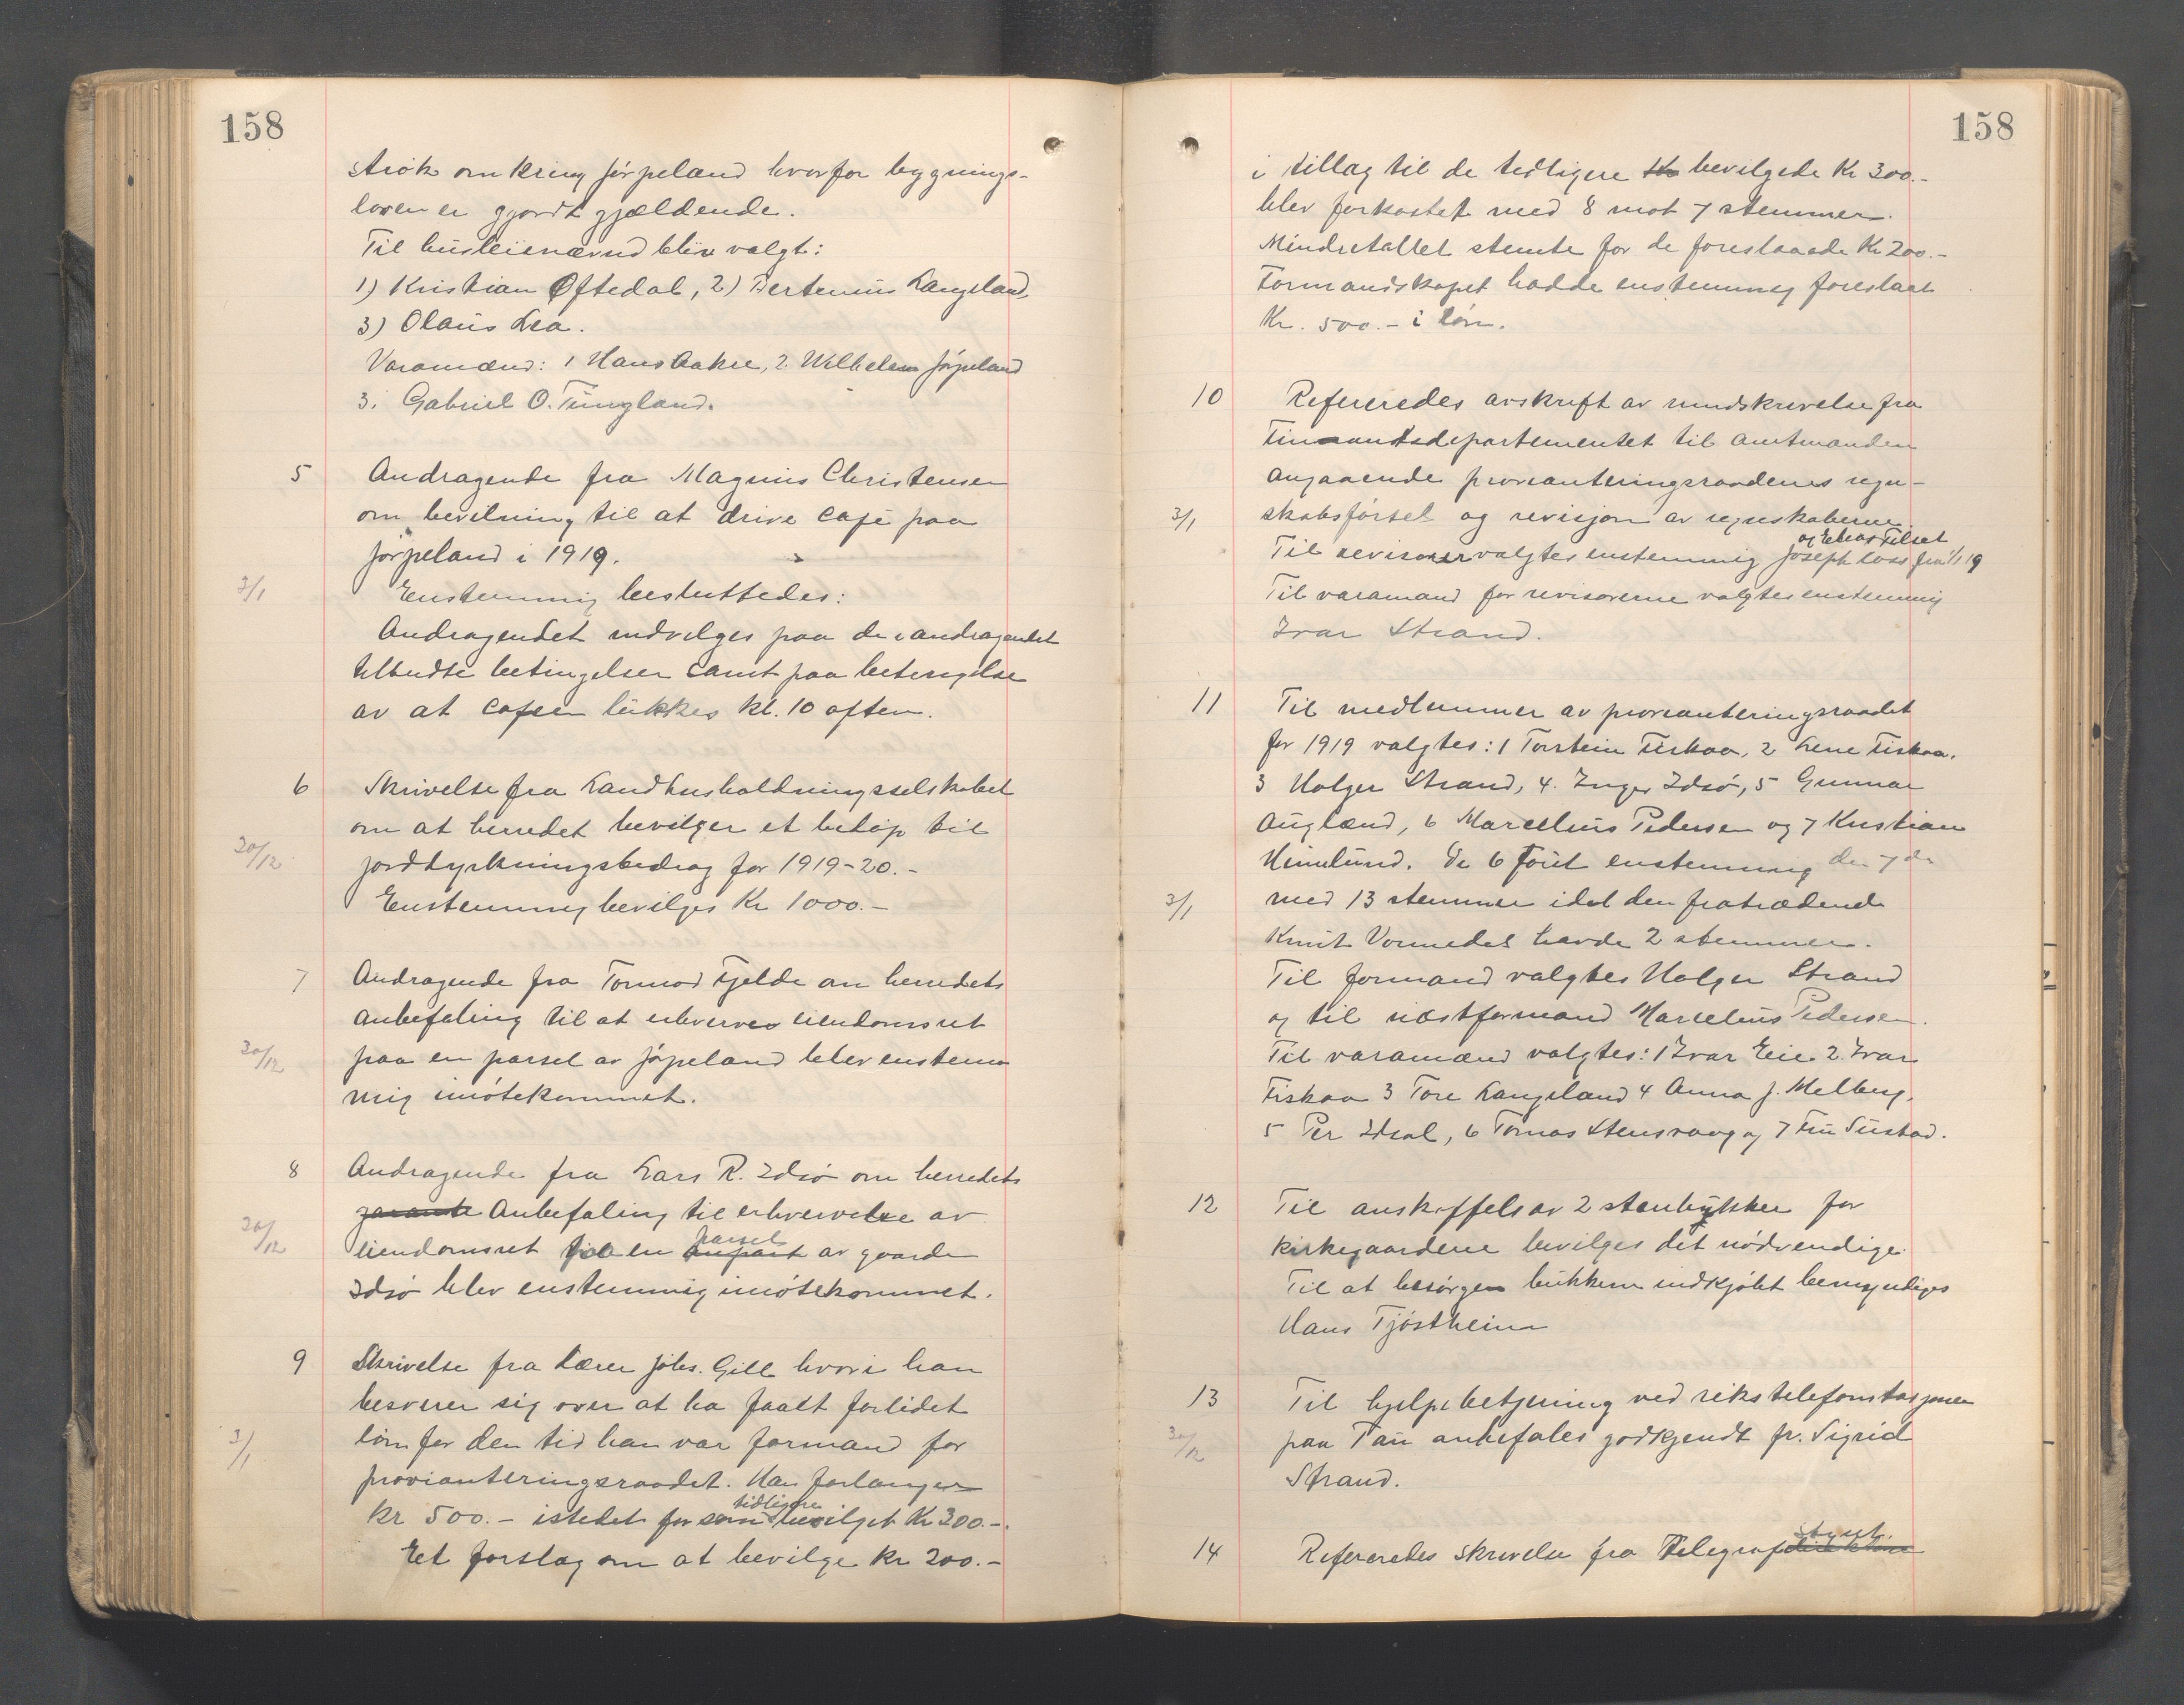 158
strøk omkring Jørpeland hvorfor bygnings-
loven er gjordt gjældende.
Til husleienævnd blir valgt:
1) Kristian Oftedal, 2) Bertinius Langeland,
3) Olaus Lea.
Varamænd: 1 Hans Aakre, 2. Wilhelm Jørpeland
3. Gabriel O. Tungland.
5 Andragende fra Magnus Christensen
om bevilning til at drive café paa
Jørpeland i 1919.
3/1 Enstemmig besluttedes:
Andragendet indvilges paa de i andragendet
tilbudte betingelser samt paa betingelse
av at cafeen lukkes kl. 10 aften.
6 Skrivelse fra Landhusholdningsselskabet
om at herredet bevilger et beløp til
20/12 jorddyrkningsbidrag for 1919-20.-
Enstemmig bevilges Kr 1000.-
7 Andragende fra Tormod Fjelde om herredets
anbefaling til at erhverve eiendomsret
20/12 paa en parsel av Jøpeland blev enstem
mig imøtekommet.
8 Andragende fra Lars R. Idsø om herredets
garante Anbefaling til erhvervelse av
20/12 eiendomsret paa en anpart parsel av gaarden
Idsø blev enstemmig imøtekommet.
9 Skrivelse fra Lærer Johs. Gill hvori han
besverer sig over at ha faatt forlidet
3/1 løn for den tid han var formand for
provianteringsraadet. Han forlanger
Kr 500.- istedet for som tidligere bevilget Kr 300.-.
Et forslag om at bevilge kr 200.-
158
i tillag til de tidligere bevilgede Kr 300.-
blev forkastet med 8 mot 7 stemmer.
Mindretallet stemte for de foreslaaede Kr 200.-
Formandskapet hadde enstemmig foreslaat
Kr. 500.- i løn.
10 Refereredes avskrift av rundskrivelse fra
Finansdepartementet til amtmanden
angaaende provianteringsraadenes regn-
3/1 skabsførsel og revisjon av regnskaberne.
Til revisorer valgtes enstemmig Joseph Voss og Elias Tilset fra 1/1 19
Til varamand for revisorerne valgtes enstemmig
Ivar Strand.
11 Til medlemmer av provianteringsraadet
for 1919 valgtes: 1 Torstein Fiskaa, 2 Lene Fiskaa.
3 Holger Strand, 4. Inger Idsø, 5 Gunnar
Augland, 6 Marcelius Pedersen og 7 Kristian
Heimlund. De 6 først enstemmig den 7de
3/1 med 13 stemmer idet den fratrædende
Knut Vormedal havde 2 stemmer.
Til formand valgtes Holger Strand
og til næstformand Marcelius Pedersen.
Til varamænd valgtes: 1 Ivar Eie 2. Ivar
Fiskaa 3 Tore Langeland 4 Anna J. Melberg,
5 Per Idsal, 6 Tomas Stensvaag og 7 Finn Sustad.
12 Til anskaffels av 2 stenbukker for
kirkegaardene bevilges det nødvendige.
Til at besørge bukkene indkjøbt bemyndiges
Hans Tjøstheim
13 Til hjelpebetjening ved rikstelefonstasjonen
20/12 paa Tau anbefales godkjendt fr. Sigrid
Strand.
14 Refereredes skrivelse fra Telegrafdirektøren styret.